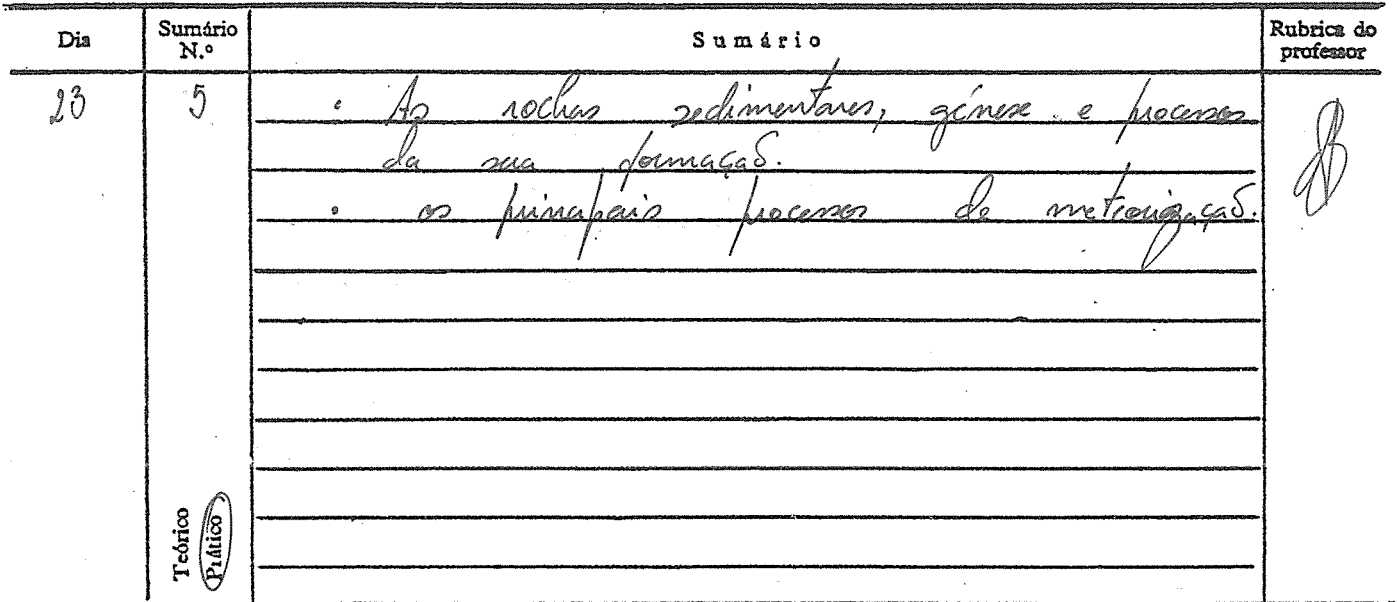 Dia
Sumário
N.º
Sumário
Rubrica do
professor
23
5
• As rochas sedimentares, génese e processos
da sua formação.
• os principais processos de meteorização.
Teórico
Prático